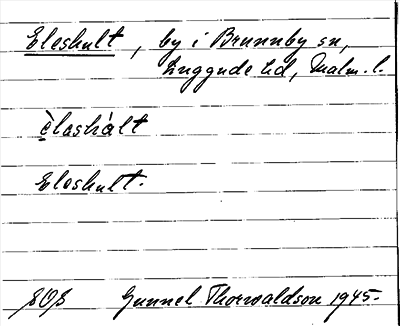 Eleshult, by i Brunnby sn,
Luggude hd, Malm. l.
èlashàlt
Eleshult.
SOS Gunnel Thorvaldson 1945.